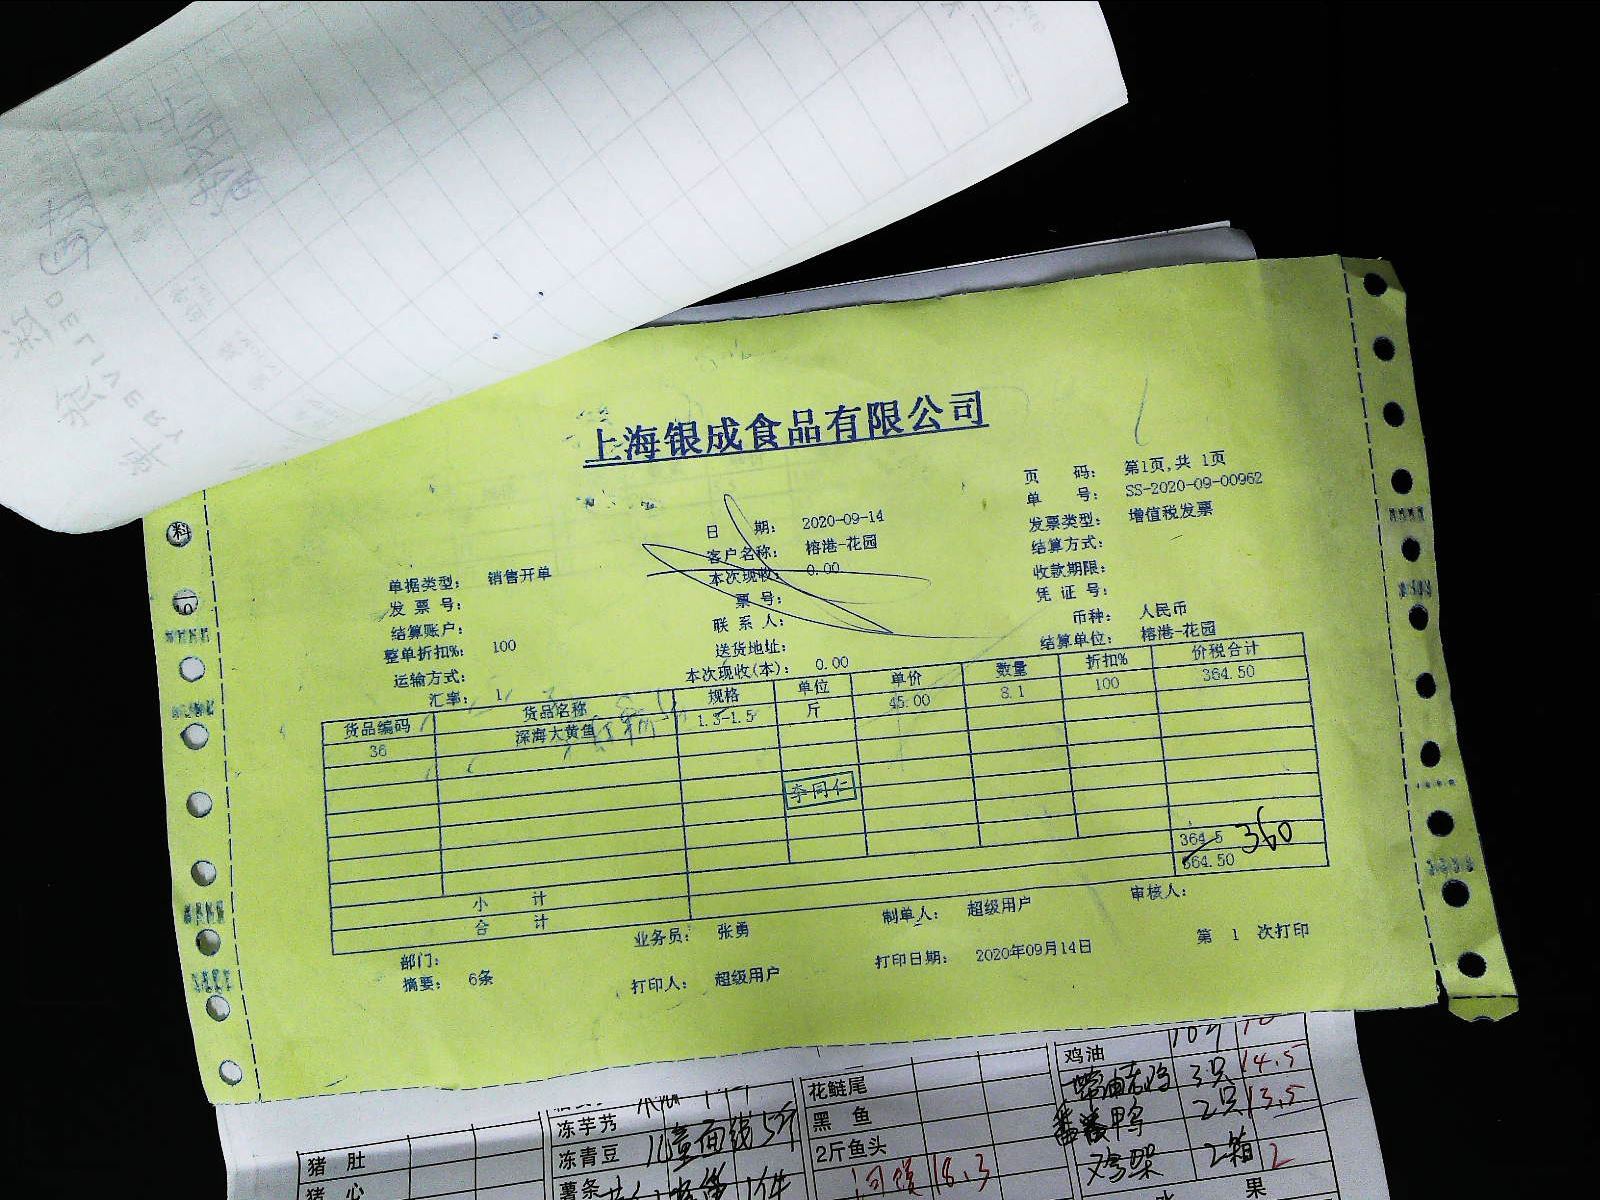 DELIVERY
上海银成食品有限公司
页 码： 第1页,共 1页
单 号： SS-2020-09-00962
日 期： 2020-09-14
发票类型： 增值税发票
客户名称： 榕港-花园
结算方式：
单据类型： 销售开单
本次现收： 0.00
收款期限：
发 票 号：
票 号：
凭 证 号：
结算账户：
联 系 人：
币种： 人民币
整单折扣%： 100
送货地址：
结算单位： 榕港-花园
运输方式：
本次现收(本)： 0.00
汇率： 1
货品编码 货品名称 规格 单位 单价 数量 折扣% 价税合计
36 深海大黄鱼 1.3-1.5 斤 45.00 8.1 100 364.50
李同仁
小 计 364.5 360
合 计 364.50
部门： 业务员： 张勇 制单人： 超级用户 审核人：
摘要： 6条 打印人： 超级用户 打印日期： 2020年09月14日 第 1 次打印
鸡油
花鲢尾 3只 14.5
冻芋艿 黑 鱼 鸭 2只 13.5
猪 肚 冻青豆 儿童面线5斤 2斤鱼头 鸡架 2箱 2
猪 心 薯条 1件 18.3 水 果